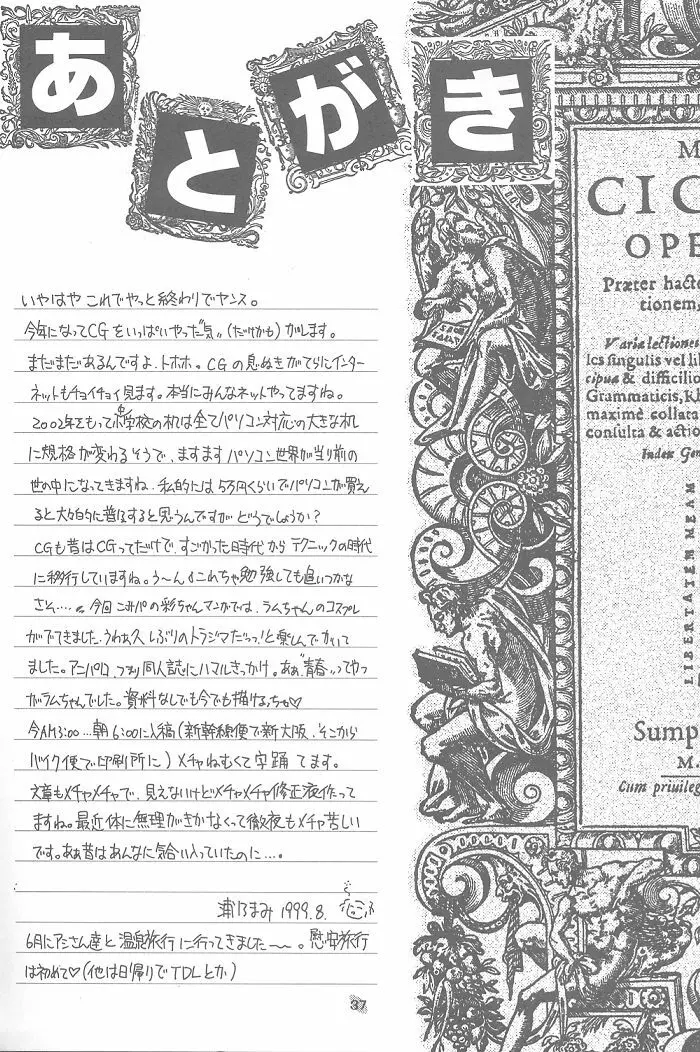 あとがき
いやはや これでやっと終わりでヤンス。
今年になってCGをいっぱいやった"気"(だけかも)がします。
まだまだあるんですよ、トホホ。CGの息ぬきがてらにインター
ネットもチョイチョイ見ます。本当にみんなネットやってますね。
2002年をもって小学校の机は全てパソコン対応の大きな机
に規格が変わるそうで、ますますパソコン世界が当り前の
世の中になってきますね。私的には5万円くらいでパソコンが買え
ると大々的に普及すると思うんですが どうでしょうか?
CGも昔はCGってだけで、すごかった時代から テクニックの時代
に移行していますね。う〜ん こればっかりは勉強しても追いつかな
さそ……。今回 こみパの彩ちゃんマンガでは、ラムちゃんのコスプレ
がでてきました、うわぁ久しぶりのトラジマだっっ!と楽しんでかいて
ました。アニパロ、つまり同人誌にハマルきっかけ。ああ"青春"ってやつ
がラムちゃんでした。資料なしでも今でも描けるっちゃ♡
今AM3:00…朝6:00に入稿(新幹線便で新大阪、そこから
バイク便で印刷所に) メチャねむくて字踊ってます。
文章もメチャメチャで、見えないけどメチャメチャ修正液使って
ますね。最近体に無理がきかなくって徹夜もメチャ苦しい
です。ああ昔はあんなに気合い入っていたのに…。
まみ 1999.8.
6月にアシさん達と温泉旅行に行ってきました〜。慰安旅行
は初めて♡(他は日帰りでTDLとか)
37
M
CIC
OPE
Præter hacte
tionem,
Variæ lectiones
les singulis vel lib
cipua & difficilio
Grammaticis, Rh
maximè collata
consulta & actio
Index Gen
LIBERTATEM MEAM
Sump
M.
Cum priuileg